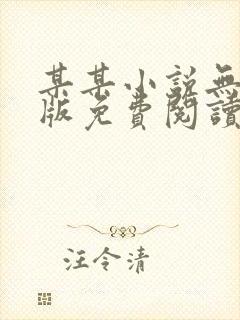 某某小説無
版免費閱讀
汪令清